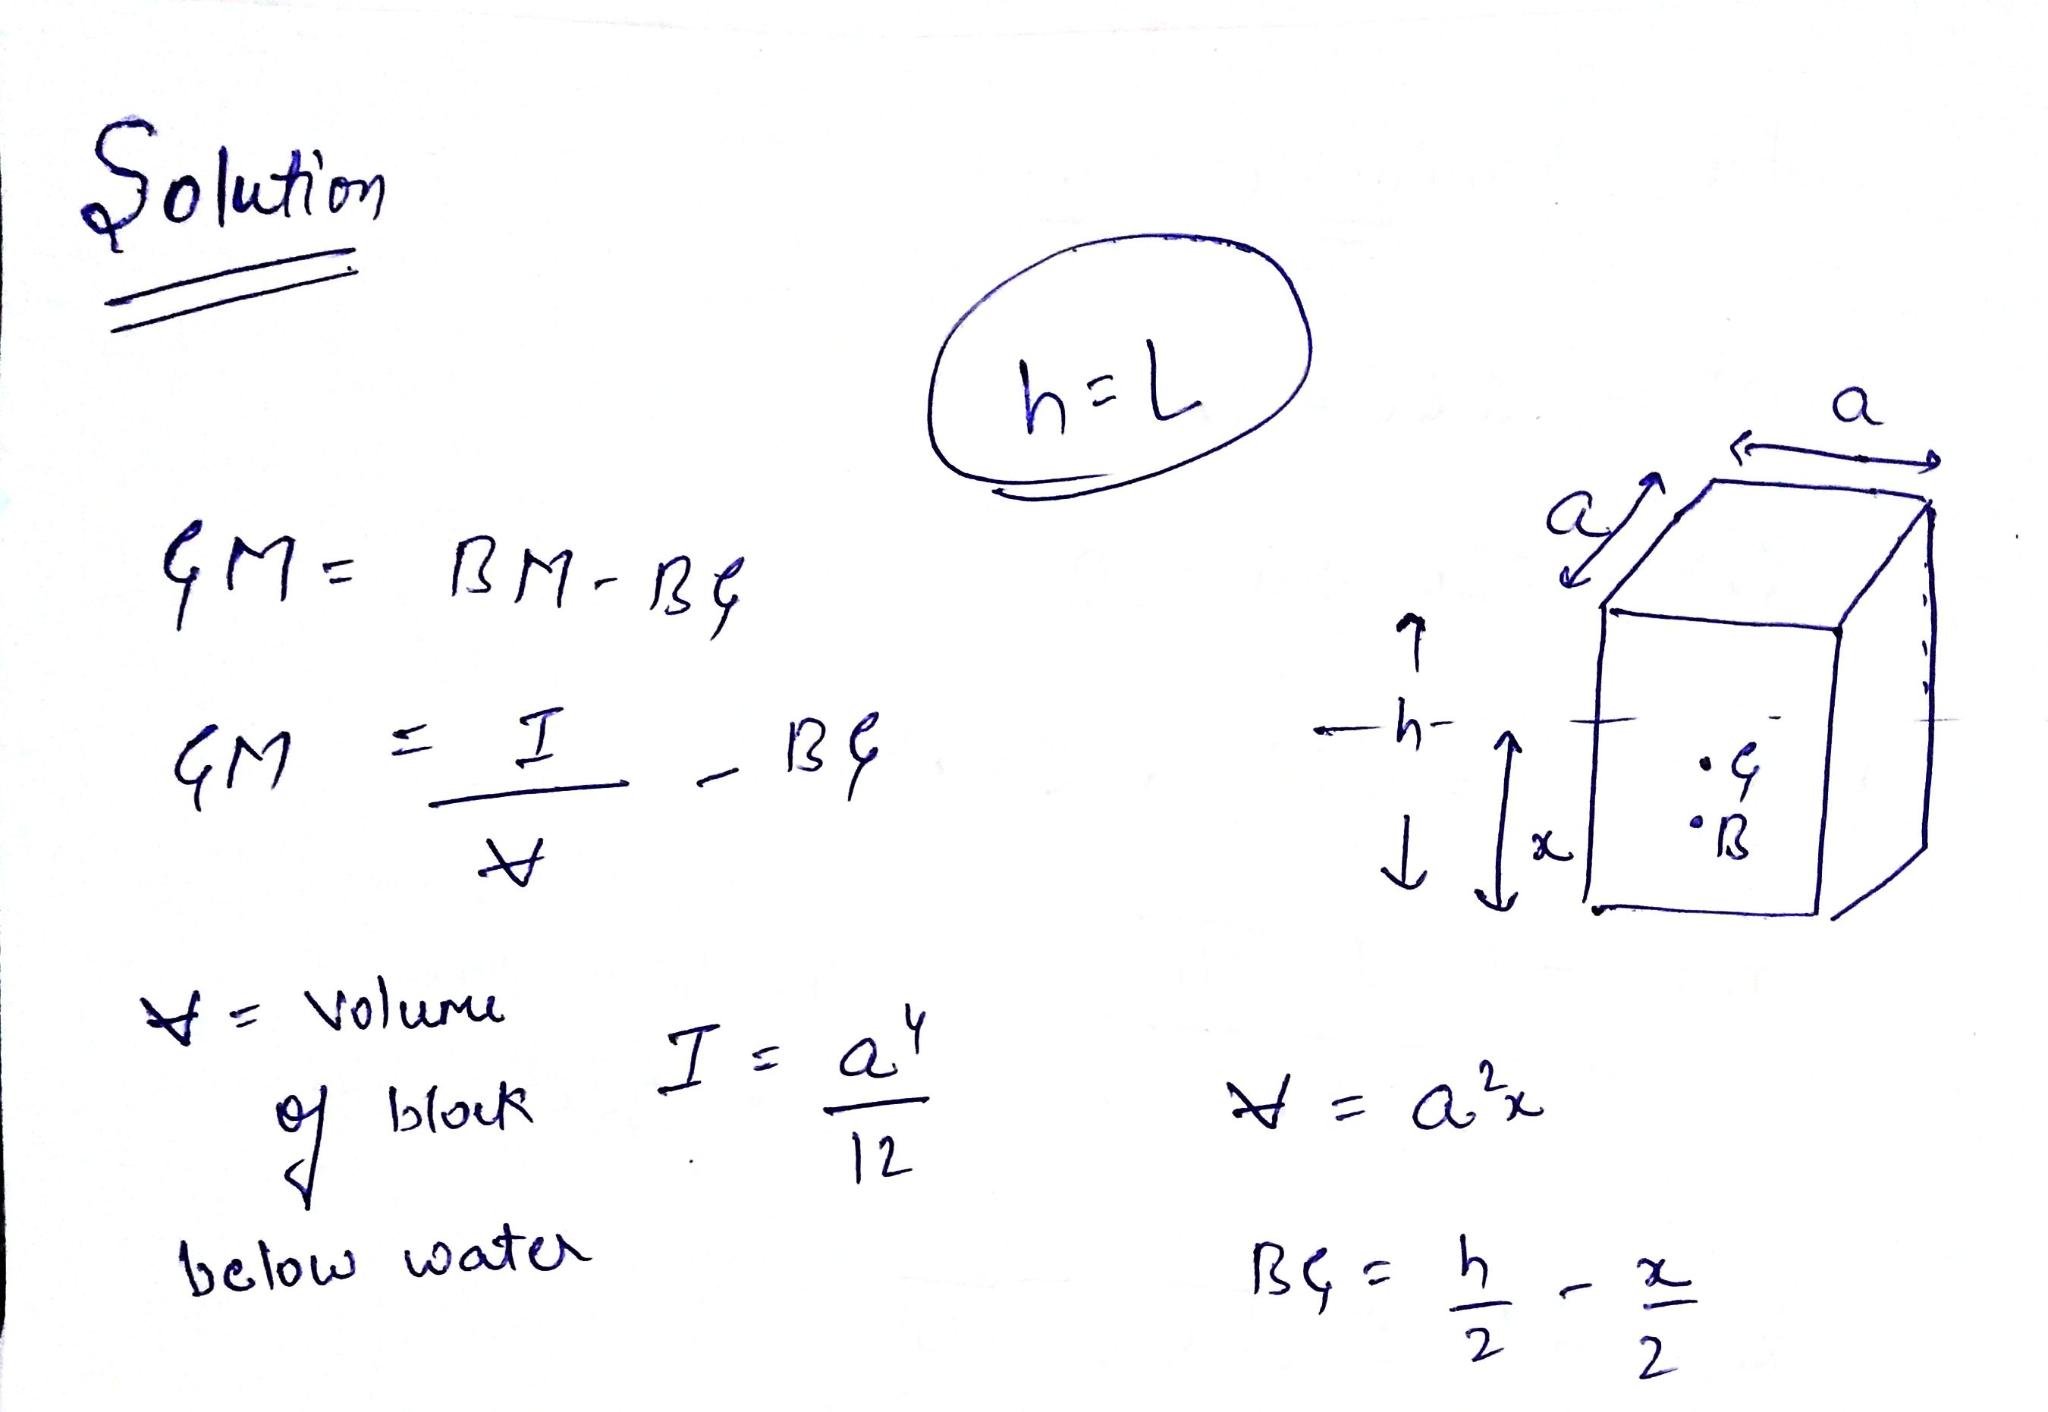 Solution
h = L
GM = BM - BG
GM = I / V̶ - BG
a
a
h
x
G
B
V̶ = Volume of block below water
I = a⁴ / 12
V̶ = a²x
BG = h/2 - x/2